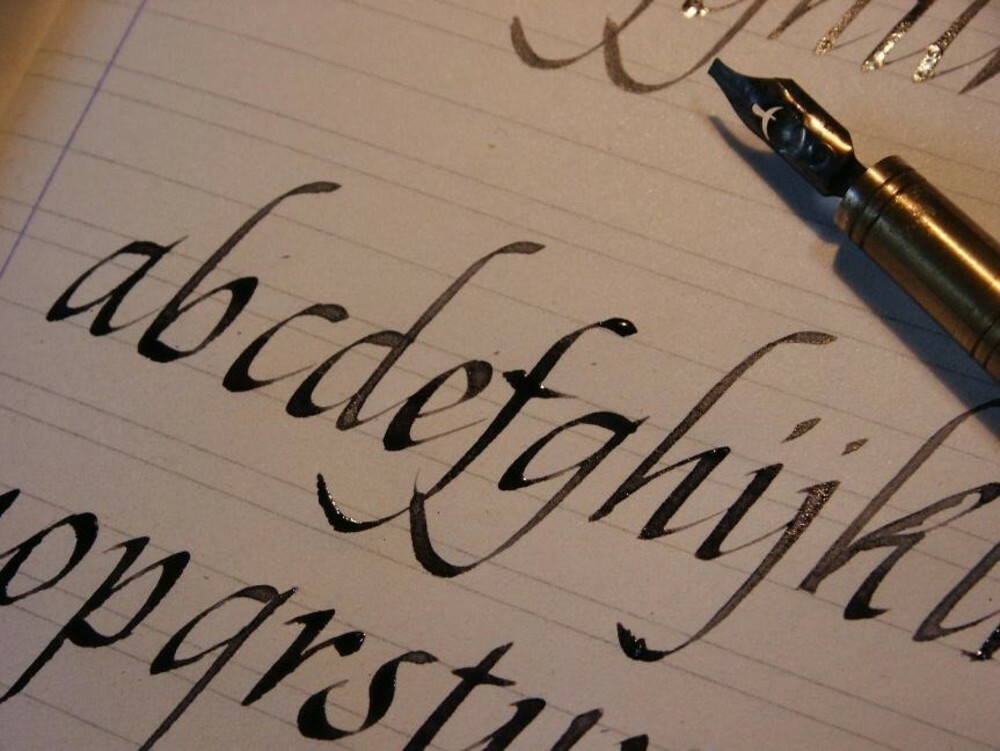 abcdefghijkl
opqrstu